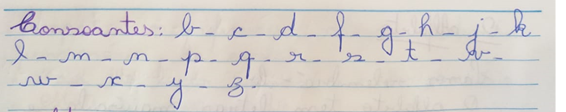 Consoantes: b - c - d - f - g - h - j - k
l - m - n - p - q - r - s - t - v -
w - x - y - z.